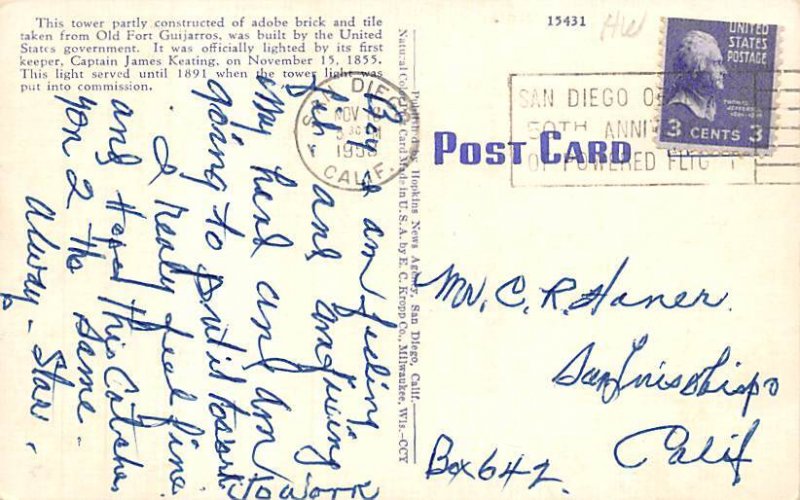 This tower partly constructed of adobe brick and tile
taken from Old Fort Guijarros, was built by the United
States government. It was officially lighted by its first
keeper, Captain James Keating, on November 15, 1855.
This light served until 1891 when the tower light was
put into commission.
Boy I am feeling
fish and am
My hand and am
going to put it to work
I really feel fine
and Hope This Catches
you 2 the same.
Alway - Starr.
Natural Color Card Made in U.S.A. by E. C. Kropp Co., Milwaukee, Wis.-CCY
Published by Hopkins News Agency, San Diego, Calif.
15431
UNITED
STATES
POSTAGE
THOMAS
JEFFERSON
3 CENTS 3
SAN DIEGO
NOV
1953
CALIF.
SAN DIEGO
50TH ANNI
OF POWERED FLIG T
POST CARD
Mr. C. R. Haner.
San Luis Obispo
Calif
Box 642.